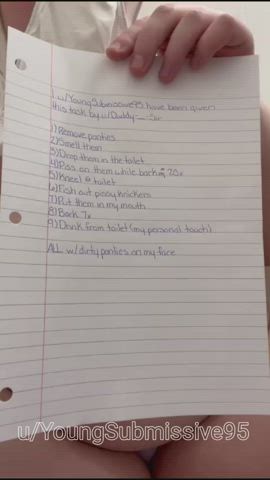 I, u/YoungSubmissive95 have been given
this task by u/Daddy-__-Sir
1) Remove panties
2) Smell them
3) Drop them in the toilet
4) Piss on them while bark 20x
5) Kneel @ toilet
6) Fish out pissy knickers
7) Put them in my mouth
8) Bark 7x
9) Drink from toilet (my personal touch)
ALL w/ dirty panties on my face
u/YoungSubmissive95